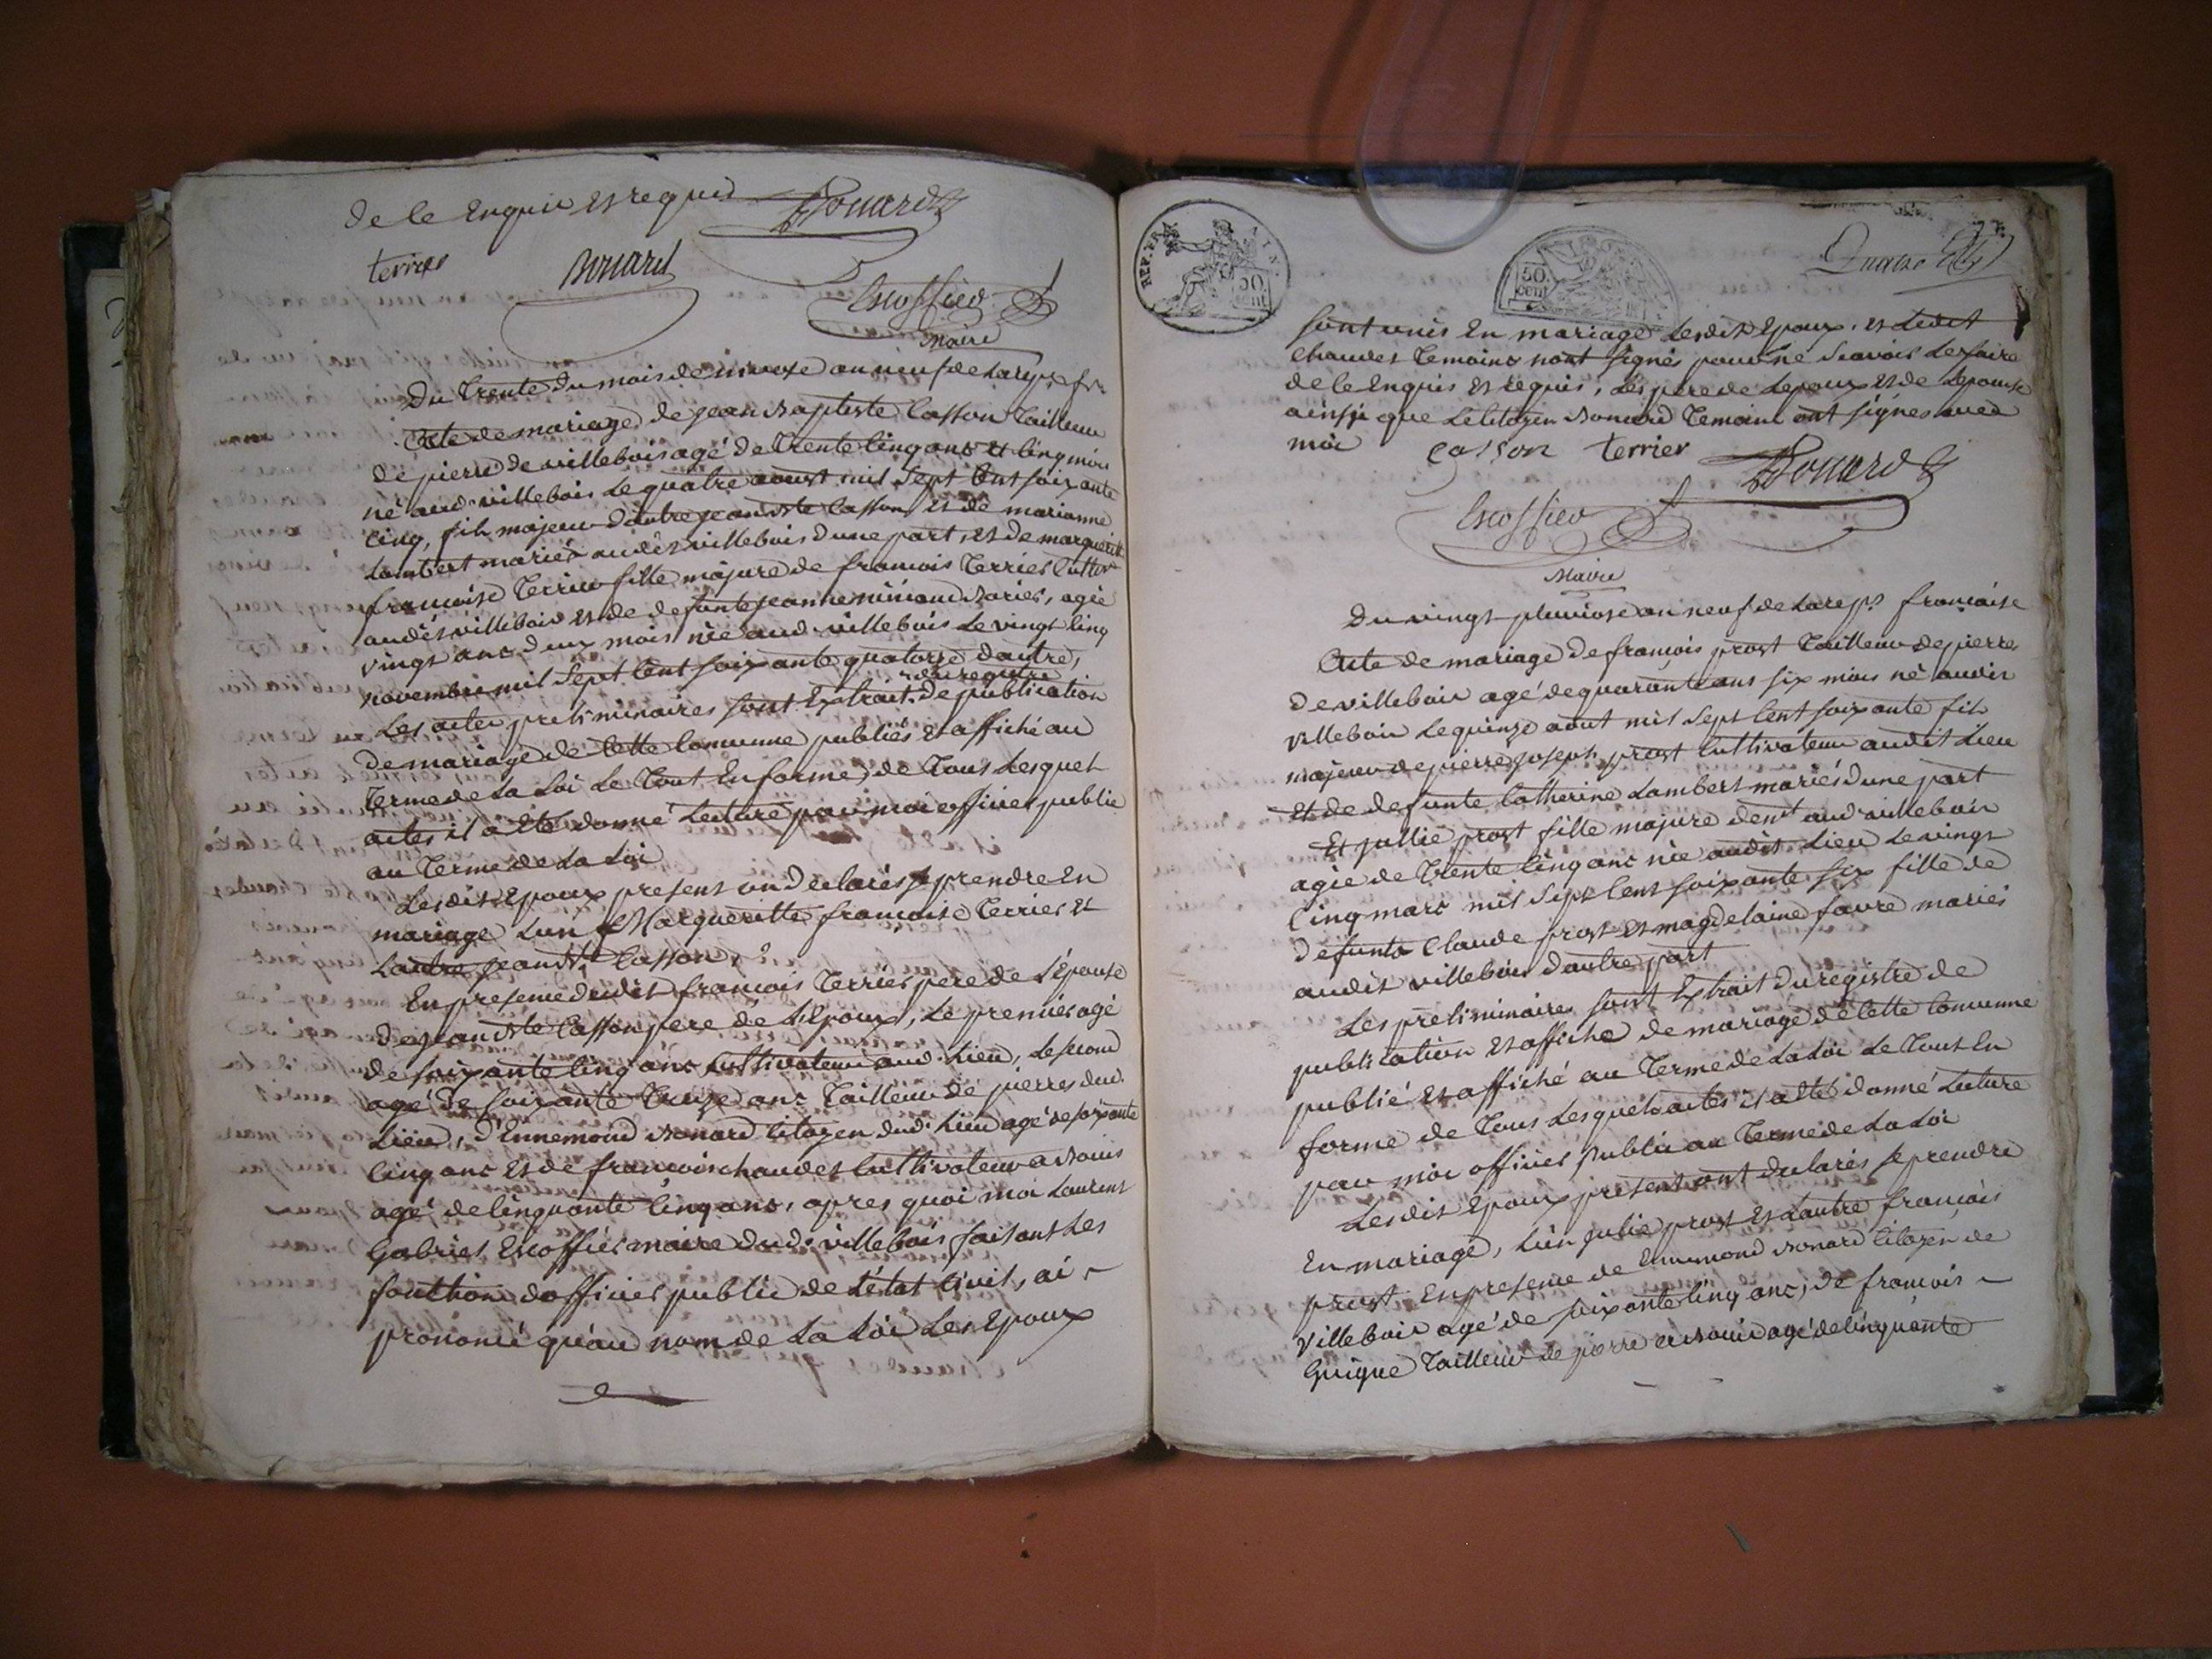 de le Enquis Et requis Bonard
terrier Bonard
Escoffier
Maire
Du trente du mois de nivose an neuf de La rep. fr.
Acte de mariage de jean Baptiste Casson Tailleur
de pierre de villebois agé de trente Cinq ans et Cinq mois
né aud. villebois Le quatre aoust mil Sept Cent soixante
Cinq, fils majeur d'autre jean Bte Casson, Et de marianne
Lambert mariés audit villebois d'une part, Et de marguerite
francoise Terrier fille majure de francois Terrier Cultivr
audit villebois Et de defunte jeanne mariés, agée
vingt ans deux mois née aud. villebois Le vingt Cinq
novembre mil Sept Cent soixante quatorze d'autre,
Les actes preliminaires sont Extrait du registre de publication
de mariage de Cette Commune publiés Et affiché au
Terme de La Loi Le Tout En forme, de Tous Lesquels
actes il a Eté donné Lecture par moi officier public
au Terme de La Loi
Lesdits Epoux present on declarés se prendre En
mariage Lun Margueritte francoise Terrier Et
Lautre jean Bte Casson,
En presence dudit francois Terrier pere de L'Epouse
de jean Bte Casson pere de L'Epoux, Le premier agé
de soixante Cinq ans Cultivateur aud. Lieu, Le second
agé de soixante treize ans Tailleur de pierres dud.
Lieu, d'Ennemond Bonard Citoyen dud. Lieu agé de soixante
Cinq ans Et de francois chaudet Cultivateur a Bouis
agé de Cinquante Cinq ans, apres quoi moi Laurent
Gabriel Escoffier maire dud. villebois faisant Les
fonction d'officier public de L'état Civil, ai
prononcé qu'au nom de La Loi Les Epoux
REP. FRA. AIN.
50 cent
50 cent
Quatre
sont unis En mariage Lesdits Epoux. Et Ledit
chaudet Temoins nont signés pour ne Scavoir Le faire
de le Enquis Et requis, Les pere de Lepoux Et de Lepouse
ainsy que Le Citoyen Bonard Temoins ont signés avec
moi Casson terrier Bonard
Escoffier
Maire
Du vingt pluviose an neuf de La rep. francaise
Acte de mariage de françois prost Tailleur de pierre
de villebois agé de quarante ans six mois né audit
villebois Le quinze aout mil Sept Cent soixante fils
majeur de pierre joseph prost Cultivateur audit Lieu
Et de defunte Catherine Lambert mariés d'une part
Et jullie prost fille majure demt aud. villebois
agée de Trente Cinq ans née audit Lieu Le vingt
Cinq mars mil Sept Cent soixante six fille de
defunts Claude prost Et magdelaine favre mariés
audit villebois d'autre part
Les preliminaires sont Extrait du registre de
publication Et affiche de mariage de Cette Commune
publié Et affiché au Terme de La Loi Le Tout En
forme de Tous Lesquels actes il a Eté donné Lecture
par moi officier public au Terme de La Loi
Lesdits Epoux present ont declarés se prendre
En mariage, L'un julie prost Et Lautre francois
prost En presence de Ennemond Bonard Citoyen de
Villebois agé de soixante Cinq ans, de francois
Guigue Tailleur de pierre a Bouis agé de Cinquante